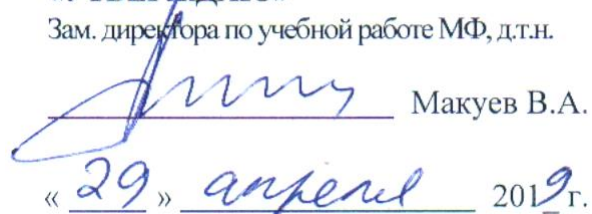 Зам. директора по учебной работе МФ, д.т.н.
Макуев В.А.
« 29 » апреля 2019 г.